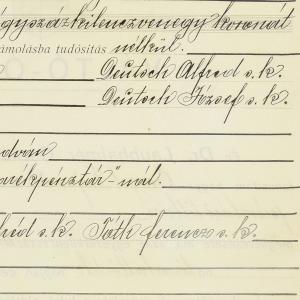 gyszázkilenczvenegy koronát
ámolásba tudósítás nélkül.
Deutsch Alfred s. k.
Deutsch József s. k.
arékpénztár"-nál.
réd s. k. Tóth ferencz s. k.